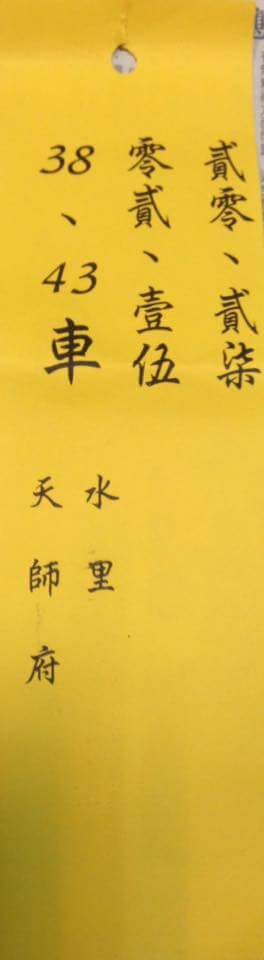 貳零、貳柒
零貳、壹伍
38、43車
水里
天師府